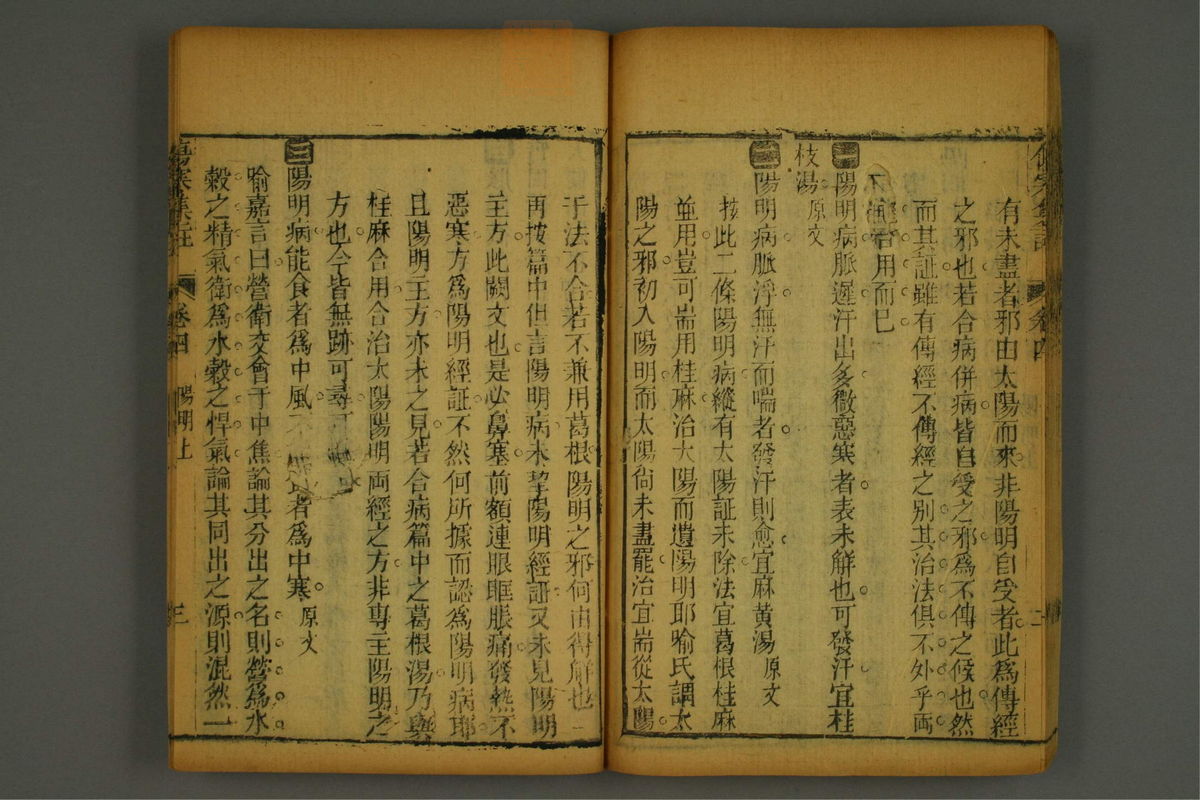 有未盡者邪由太陽而來非陽明自受者此爲傳經
之邪也若合病併病皆自受之邪爲不傳之候也然
而其証雖有傳經不傳經之別其治法俱不外乎両
合用而已
二陽明病脈遲汗出多微惡寒者表未解也可發汗宜桂
枝湯原文
三陽明病脈浮無汗而喘者發汗則愈宜麻黄湯原文
按此二條陽明病縱有太陽証未除法宜葛根桂麻
並用豈可耑用桂麻治太陽而遺陽明耶喻氏謂太
陽之邪初入陽明而太陽尚未盡罷治宜耑從太陽
卷四
二
于法不合若不兼用葛根陽明之邪何由得解也
再按篇中但言陽明病未挈陽明經証又未見陽明
主方此闕文也是必鼻塞前額連眼眶脹痛發熱不
惡寒方爲陽明經証不然何所據而認爲陽明病耶
且陽明主方亦未之見若合病篇中之葛根湯乃與
桂麻合用合治太陽陽明両經之方非專主陽明之
方也今皆無跡可尋
三陽明病能食者爲中風不能食者爲中寒原文
喻嘉言曰營衛交會于中焦論其分出之名則營爲水
穀之精氣衛爲水穀之悍氣論其同出之源則混然一
傷寒集註
卷四
陽明上
三